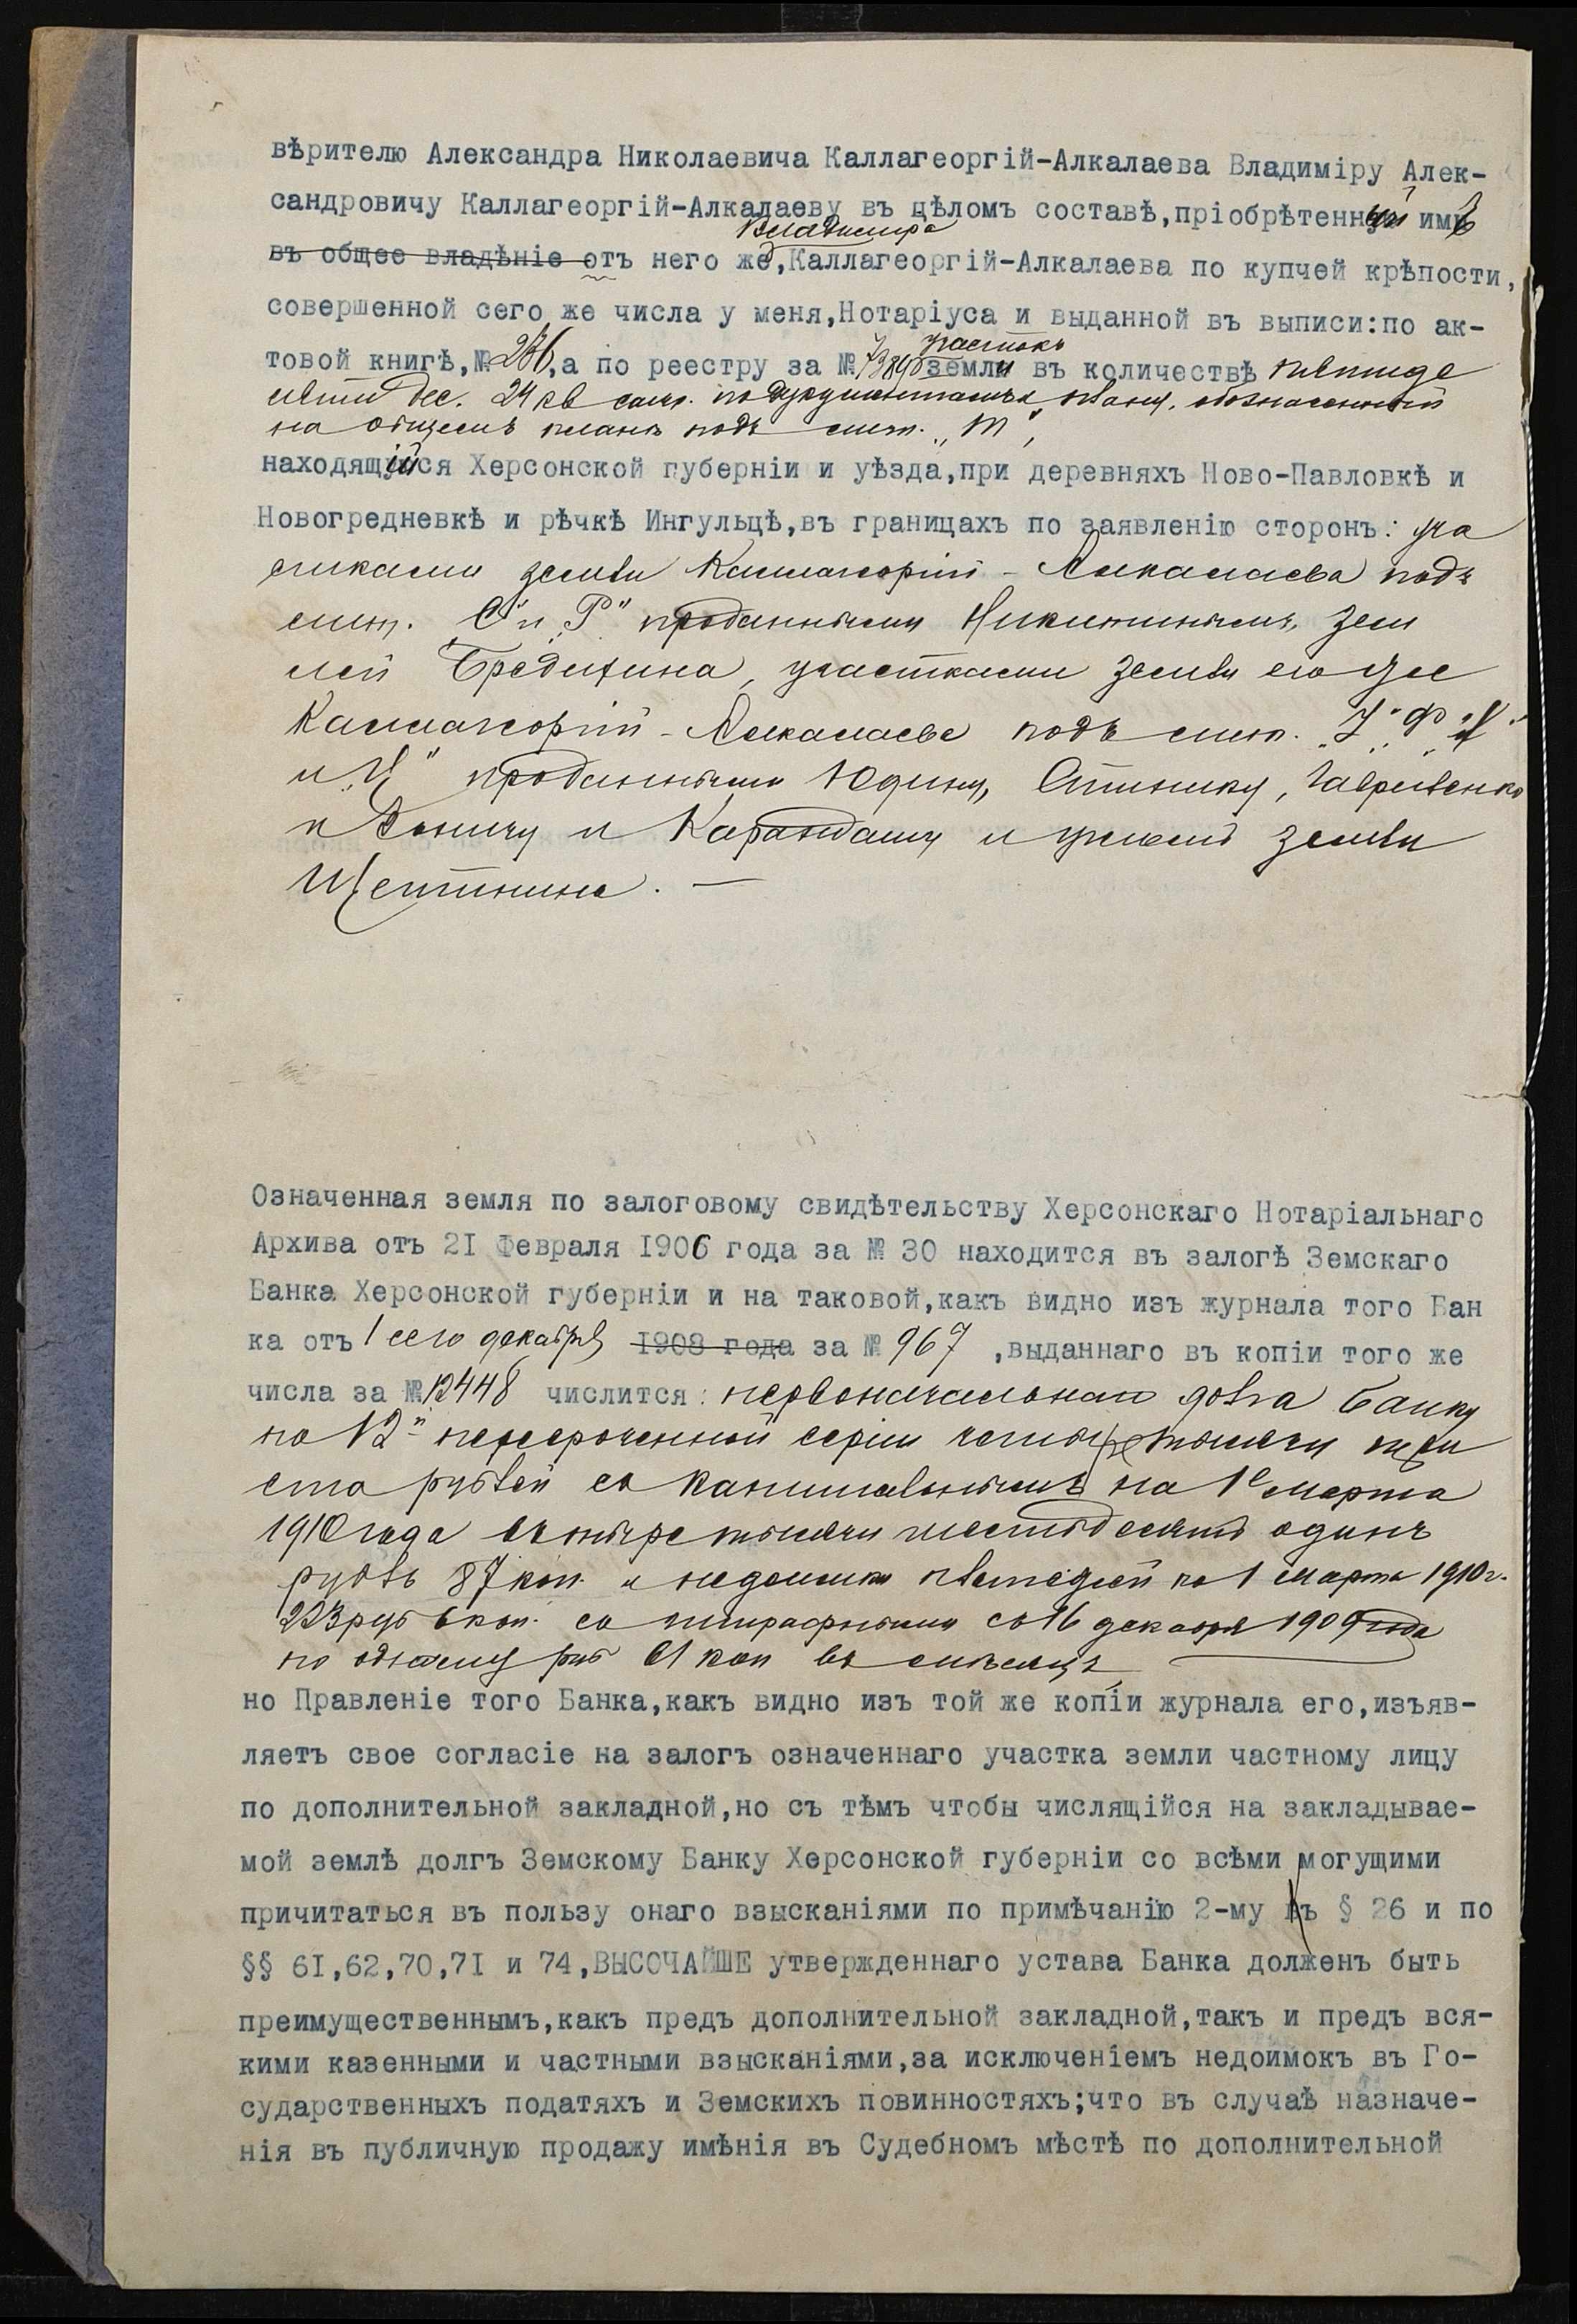 вѣрителю Александра Николаевича Каллагеоргій-Алкалаева Владиміру Алек-
сандровичу Каллагеоргій-Алкалаеву въ цѣломъ составѣ,пріобрѣтенный имъ
Владимира
въ общее владѣніе отъ него же,Каллагеоргій-Алкалаева по купчей крѣпости,
совершенной сего же числа у меня,Нотаріуса и выданной въ выписи:по ак-
участокъ
товой книгѣ,№ ,а по реестру за № земли въ количествѣ пятиде
сяти дес. 24 кв саж. по документамъ и плану, обозначенный
на общемъ планѣ подъ лит. „Т",
находящійся Херсонской губерніи и уѣзда,при деревняхъ Ново-Павловкѣ и
Новогредневкѣ и рѣчкѣ Ингульцѣ,въ границахъ по заявленію сторонъ: уча
стками земли Каллагеоргій-Алкалаева подъ
лит. „С" и „Р" проданными Никитинымъ, зем
лей Бредихина, участками земли его же
Каллагеоргій-Алкалаева подъ лит. „У" „Ф" „Х"
и „Ц" проданными Юдину, Гавриленко
и и Карандашу и землей земли
Щетинина. —
Означенная земля по залоговому свидѣтельству Херсонскаго Нотаріальнаго
Архива отъ 2I Февраля I906 года за № 30 находится въ залогѣ Земскаго
Банка Херсонской губерніи и на таковой,какъ видно изъ журнала того Бан
ка отъ 1 сего декабря I908 года за № 967 ,выданнаго въ копіи того же
числа за № 12448 числится: первоначальнаго долга банку
по 12й пересроченной серіи четыре тысячи три
ста рублей съ капитальнымъ на 1е марта
1910 года четыре тысячи шестьдесятъ одинъ
рубль 87 коп. и недоимки платежей по 1 марта 1910 г.
223 руб 6 коп. со штрафными съ 16 декабря 1909 года
по одному руб 61 коп въ мѣсяцъ
но Правленіе того Банка,какъ видно изъ той же копіи журнала его,изъяв-
ляетъ свое согласіе на залогъ означеннаго участка земли частному лицу
по дополнительной закладной,но съ тѣмъ чтобы числящійся на закладывае-
мой землѣ долгъ Земскому Банку Херсонской губерніи со всѣми могущими
причитаться въ пользу онаго взысканіями по примѣчанію 2-му къ § 26 и по
§§ 6I,62,70,7I и 74,ВЫСОЧАЙШЕ утвержденнаго устава Банка долженъ быть
преимущественнымъ,какъ предъ дополнительной закладной,такъ и предъ вся-
кими казенными и частными взысканіями,за исключеніемъ недоимокъ въ Го-
сударственныхъ податяхъ и Земскихъ повинностяхъ;что въ случаѣ назначе-
нія въ публичную продажу имѣнія въ Судебномъ мѣстѣ по дополнительной